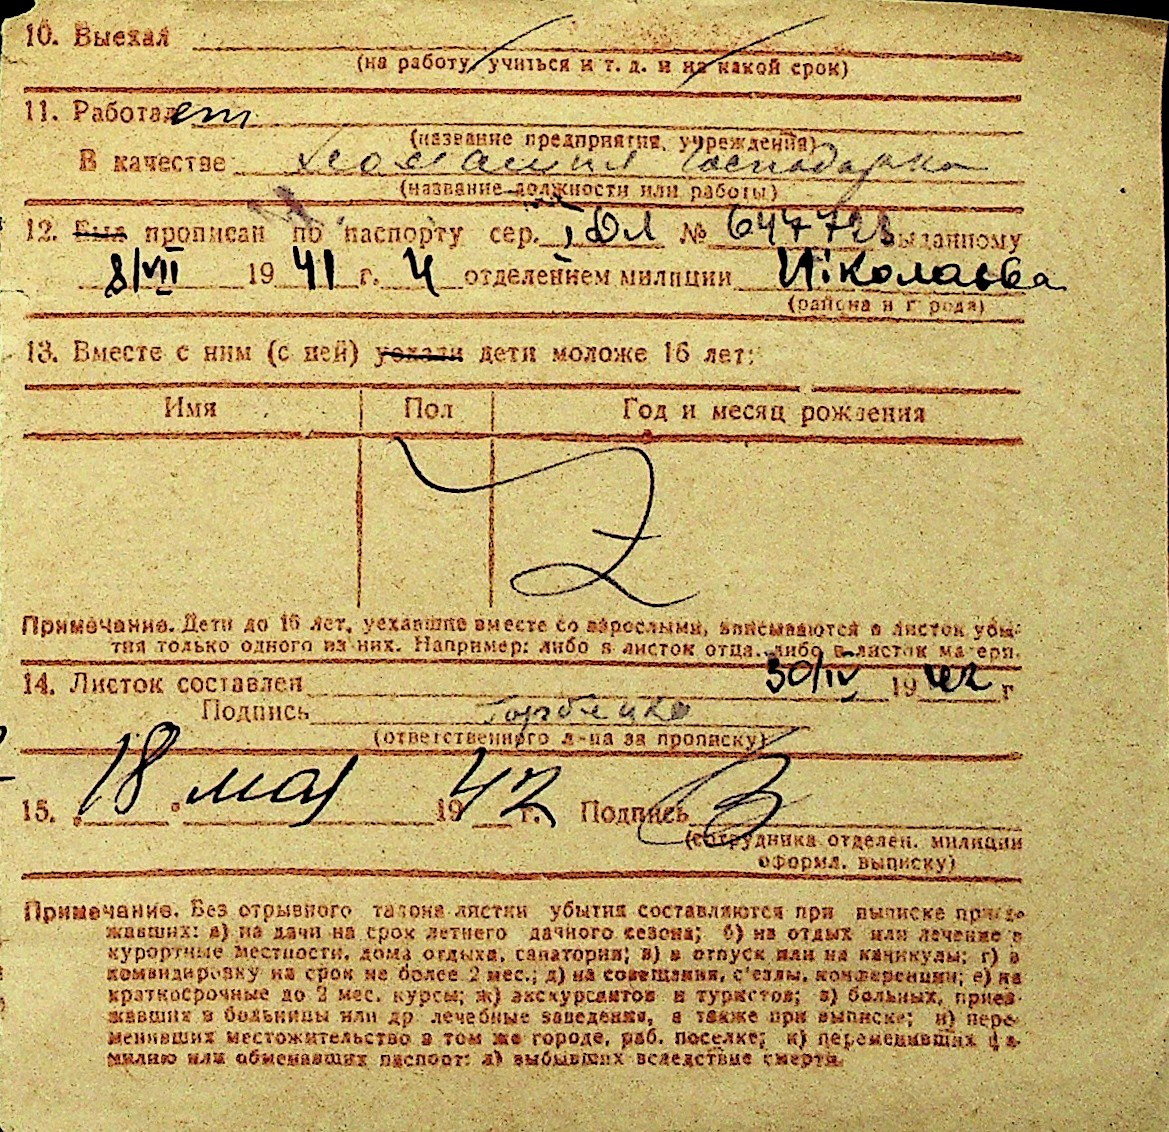 10. Выехал
(на работу, учиться и т. д. и на какой срок)
11. Работает
(название предприятия, учреждения)
В качестве домашня господарка
(название должности или работы)
12. Был прописан по паспорту сер. № 647728 выданному
8/VII 1941 г. 4 отделением милиции Ніколаєва
(района и города)
13. Вместе с ним (с ней) уехали дети моложе 16 лет:
Имя Пол Год и месяц рождения
Z
Примечание. Дети до 16 лет, уехавшие вместе со взрослыми, вписываются в листок убы-
тия только одного из них. Например: либо в листок отца, либо в листок матери.
14. Листок составлен 30/IV 1942 г
Подпись Горбенко
(ответственного л-ца за прописку)
15. 18 мая 1942 г. Подпись
(сотрудника отделен. милиции
оформл. выписку)
Примечание. Без отрывного талона листки убытия составляются при выписке приез-
жавших: а) на дачи на срок летнего дачного сезона; б) на отдых или лечение в
курортные местности, дома отдыха, санатории; в) в отпуск или на каникулы; г) в
командировку на срок не более 2 мес.; д) на совещания, с'езды, конференции; е) на
краткосрочные до 2 мес. курсы; ж) экскурсантов и туристов; з) больных, приез-
жавших в больницы или др. лечебные заведения, а также при выписке; и) пере-
менивших местожительство в том же городе, раб. поселке; к) переменивших фа-
милию или обменявших паспорт; л) выбывших вследствие смерти.